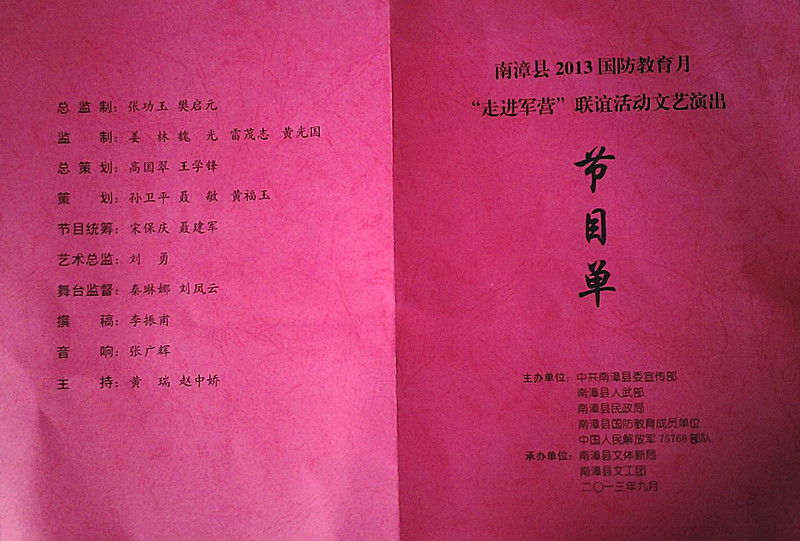 总 监 制：张功玉 樊启元
监 制：姜 林 魏 光 雷茂志 黄光国
总 策 划：高国翠 王学锋
策 划：孙卫平 聂 敏 黄福玉
节目统筹：宋保庆 聂建军
艺术总监：刘 勇
舞台监督：秦琳娜 刘凤云
撰 稿：李振甫
音 响：张广辉
主 持：黄 瑞 赵中娇
南漳县 2013 国防教育月
“走进军营”联谊活动文艺演出
节
目
单
主办单位：中共南漳县委宣传部
南漳县人武部
南漳县民政局
南漳县国防教育成员单位
中国人民解放军 75768 部队
承办单位：南漳县文体新局
南漳县文工团
二〇一三年九月